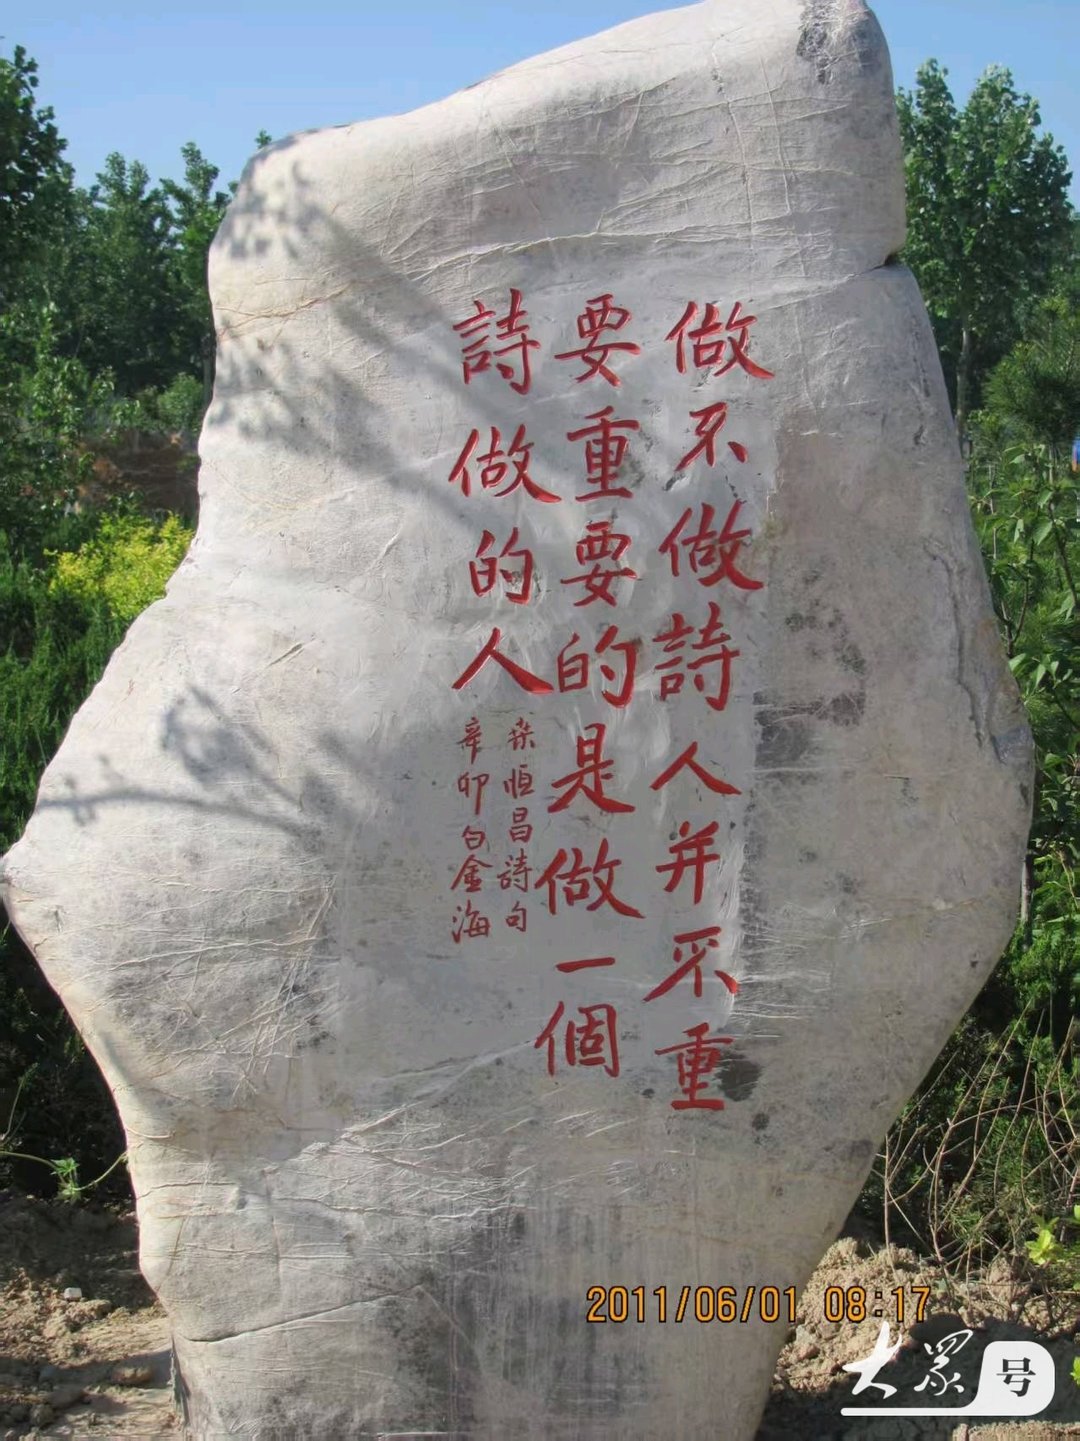 做不做詩人并不重
要重要的是做一個
詩做的人
桒恒昌詩句
辛卯白金海
2011/06/01 08:17
大眾号